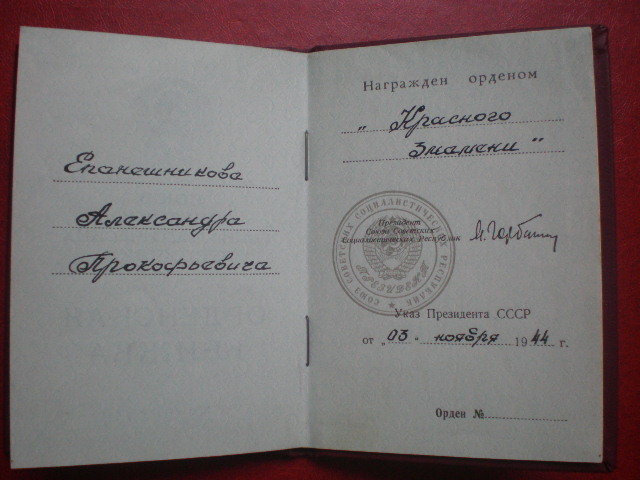 Епанешникова
Александра
Прокофьевича
Награжден орденом
„ Красного
Знамени "
Президент
Союза Советских
Социалистических Республик
М. Горбачев
СОЮЗ СОВЕТСКИХ СОЦИАЛИСТИЧЕСКИХ РЕСПУБЛИК
ПРЕЗИДЕНТ
Указ Президента СССР
от „ 03 " ноября 1944 г.
Орден №